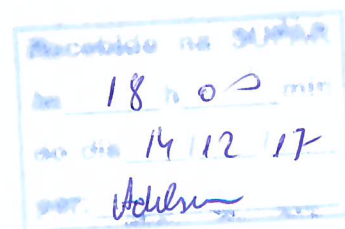 Recebido na SUPAR
às 18 h 00 min
no dia 14/12/17
por: